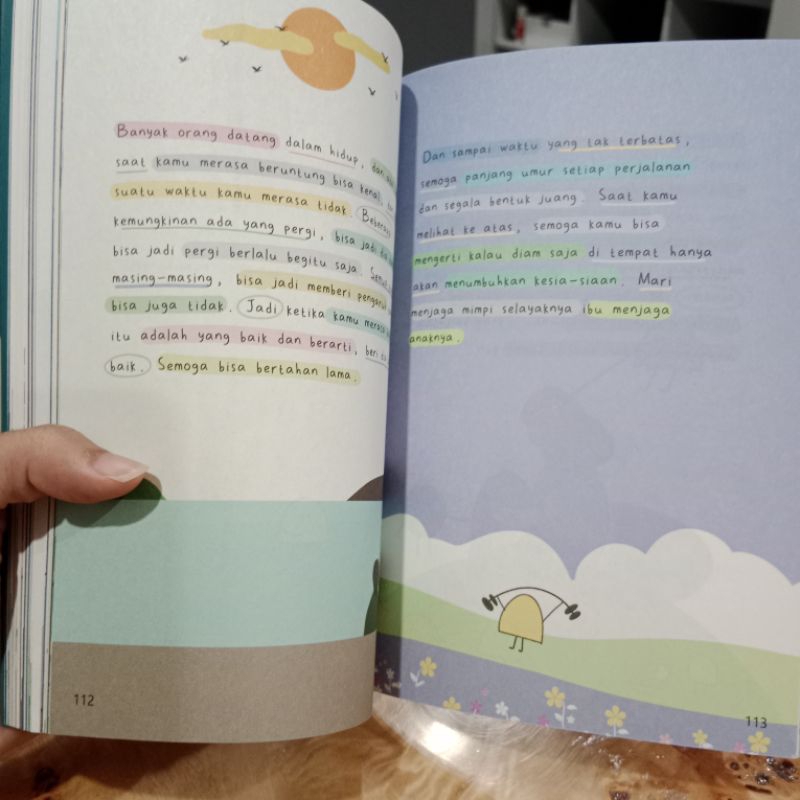 Banyak orang datang dalam hidup,
saat kamu merasa beruntung bisa kenal,
suatu waktu kamu merasa tidak.
kemungkinan ada yang pergi, bisa jadi
bisa jadi pergi berlalu begitu saja.
masing-masing, bisa jadi memberi
bisa juga tidak. Jadi ketika kamu
itu adalah yang baik dan berarti, beri
baik. Semoga bisa bertahan lama.
112
Dan sampai waktu yang tak terbatas,
semoga panjang umur setiap perjalanan
dan segala bentuk juang. Saat kamu
melihat ke atas, semoga kamu bisa
mengerti kalau diam saja di tempat hanya
akan menumbuhkan kesia-siaan. Mari
menjaga mimpi selayaknya ibu menjaga
anaknya.
113